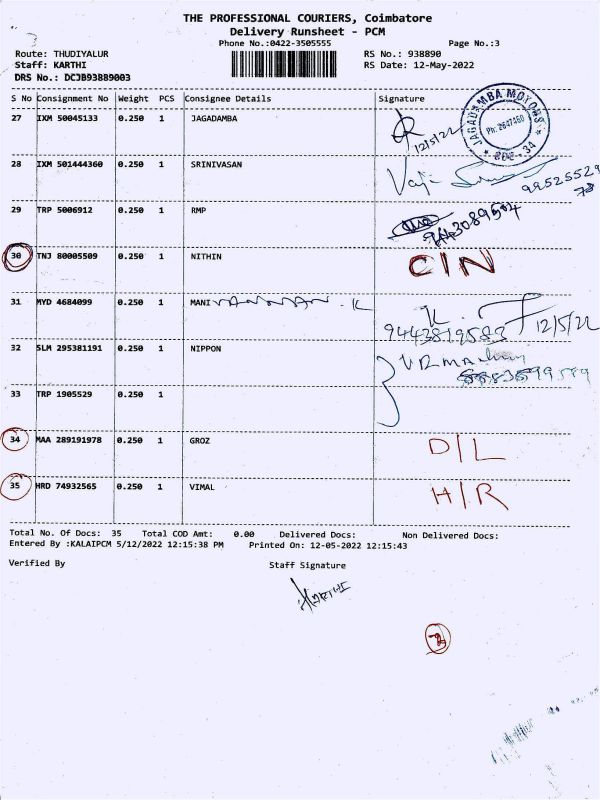 THE PROFESSIONAL COURIERS, Coimbatore
Delivery Runsheet - PCM
Phone No.:0422-3505555 Page No.:3
Route: THUDIYALUR RS No.: 938890
Staff: KARTHI RS Date: 12-May-2022
DRS No.: DCJB93889003
S No Consignment No Weight PCS Consignee Details Signature
27 IXM 50045133 0.250 1 JAGADAMBA 12/5/22
JAGADAMBA MOTORS
Ph: 2647460
CBE - 34
28 IXM 501444360 0.250 1 SRINIVASAN
29 TRP 5006912 0.250 1 RMP
30 TNJ 80005509 0.250 1 NITHIN C/N
31 MYD 4684099 0.250 1 MANIVANNAN . K
9443819583 12/5/22
32 SLM 295381191 0.250 1 NIPPON
33 TRP 1905529 0.250 1
34 MAA 289191978 0.250 1 GROZ D/L
35 HRD 74932565 0.250 1 VIMAL H/R
Total No. Of Docs: 35 Total COD Amt: 0.00 Delivered Docs: Non Delivered Docs:
Entered By :KALAIPCM 5/12/2022 12:15:38 PM Printed On: 12-05-2022 12:15:43
Verified By Staff Signature
KARTHI